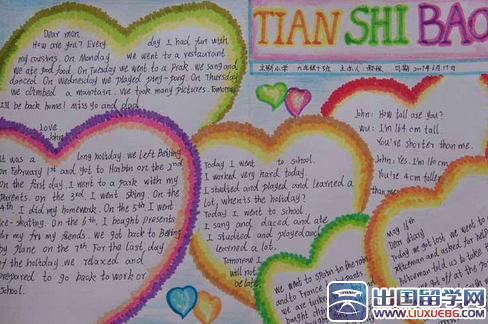 TIAN SHI BAO
Dear mom,
How are you? Every day I had fun with
my cousins. On Monday we went to a restaurant.
We ate good food. On Tuesday we went to a Prak. We sang and
danced. On Wednesday we played ping-pong. On Thursday
we climbed a mountain. We took many pictures. Tomorrow
I'll be back home! miss you and dad.
Love.
John
It was a long holiday. We left Beijing
on February 1st and got to Harbin on the 2nd
on the first day. I went to a park with my
Parents. on the 3rd. I went skiing. On the
4th I did my homework. On the 5th I went
ice-skating. On the 6th I bought presents
for my friends. We got back to Beijing
by plane on the 7th. For the last day
of the holiday we relaxed and
prepared to go back to work or
school.
Today I went to school.
I worked very hard today.
I studied and played and learned a
lot, when's the holiday?
Today I went to school
I sang and daced and ate
I studied and played and
learned a lot.
Tomorrow I
will not
be late
We went to Spain by
and to France
we are
bought
John: How tall are you?
Wu: I'm 164 cm tall.
You're shorter than me.
John: Yes. I'm 160 cm
You're 4 cm taller
than
May 11th
Dear diary
Today we got lost. we went to
policeman and asked for help
policeman told us to take
get off at the
出国留学网
WWW.LIUXUE86.COM